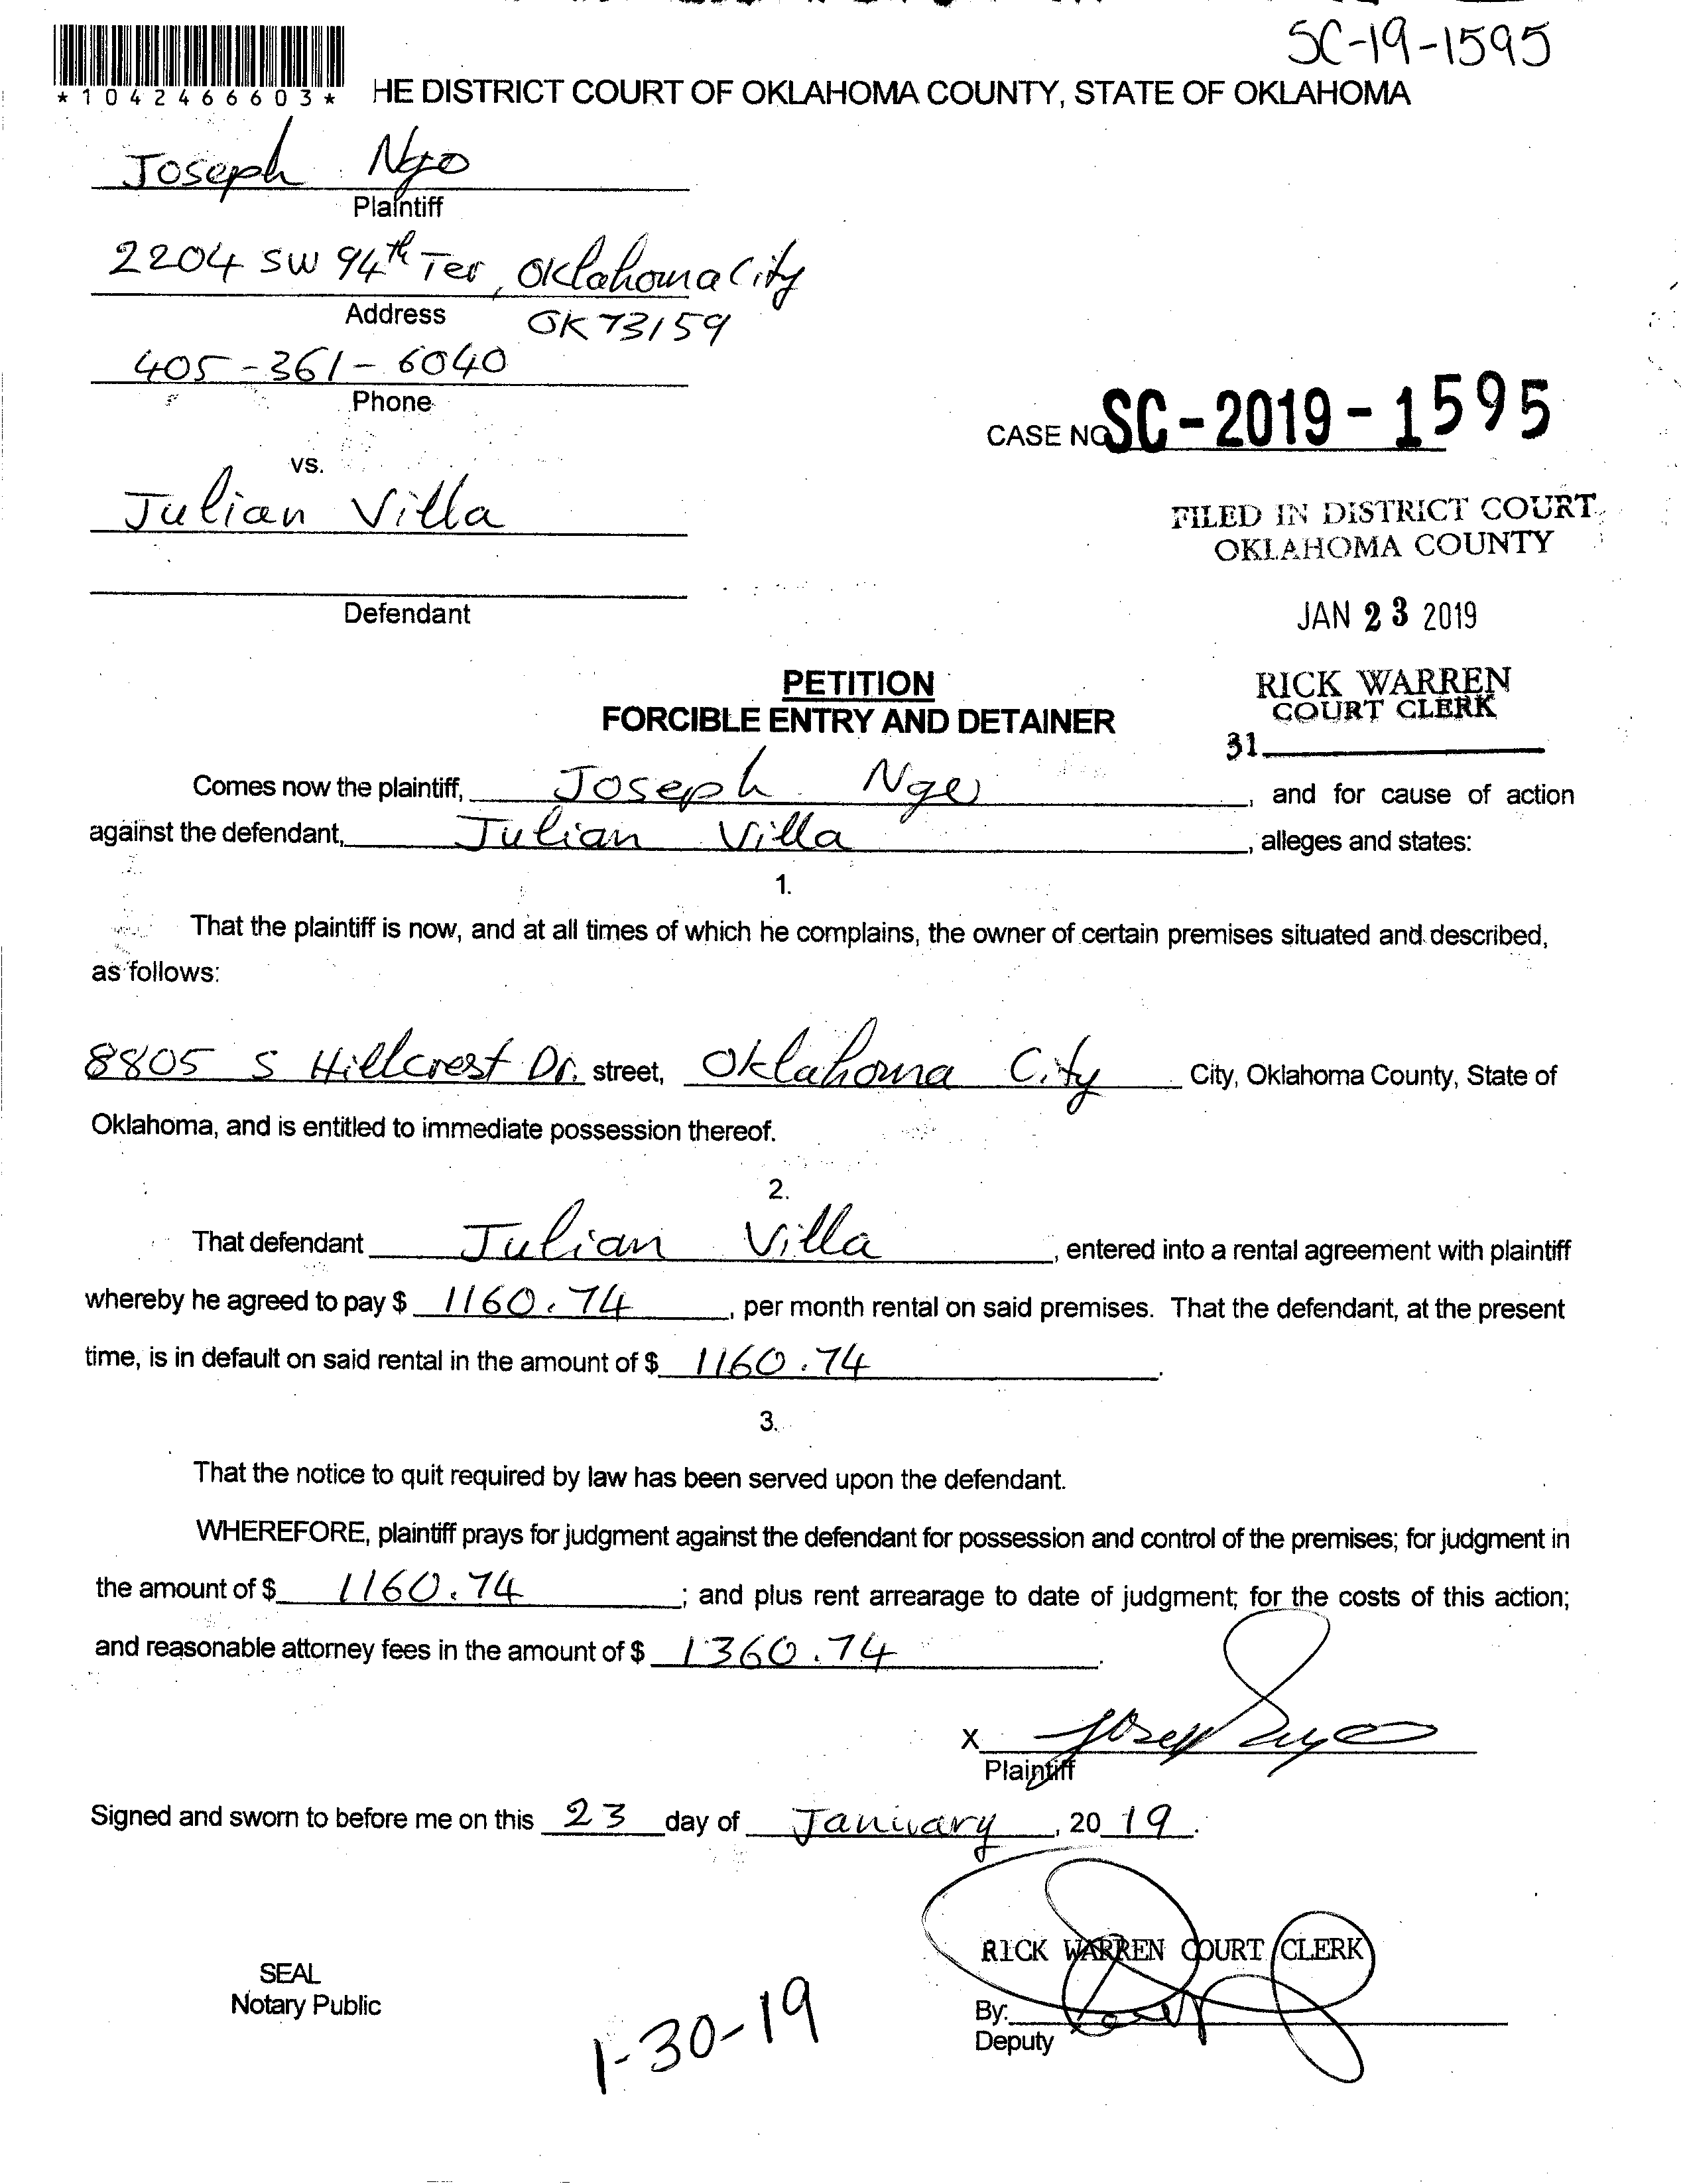 SC-19-1595
*1042466603*
HE DISTRICT COURT OF OKLAHOMA COUNTY, STATE OF OKLAHOMA
Joseph Ngo
Plaintiff
2204 SW 94th Ter, Oklahoma City
Address
OK 73159
405-361-6040
Phone
CASE NO SC-2019-1595
vs.
Julian Villa
FILED IN DISTRICT COURT
OKLAHOMA COUNTY
Defendant
JAN 23 2019
PETITION
FORCIBLE ENTRY AND DETAINER
RICK WARREN
COURT CLERK
31
Comes now the plaintiff, Joseph Ngo, and for cause of action
against the defendant, Julian Villa, alleges and states:
1.
That the plaintiff is now, and at all times of which he complains, the owner of certain premises situated and described,
as follows:
8805 S Hillcrest Dr. street, Oklahoma City City, Oklahoma County, State of
Oklahoma, and is entitled to immediate possession thereof.
2.
That defendant Julian Villa, entered into a rental agreement with plaintiff
whereby he agreed to pay $ 1160.74, per month rental on said premises. That the defendant, at the present
time, is in default on said rental in the amount of $ 1160.74.
3.
That the notice to quit required by law has been served upon the defendant.
WHEREFORE, plaintiff prays for judgment against the defendant for possession and control of the premises; for judgment in
the amount of $ 1160.74; and plus rent arrearage to date of judgment; for the costs of this action;
and reasonable attorney fees in the amount of $ 1360.74.
X Joseph Ngo
Plaintiff
Signed and sworn to before me on this 23 day of January, 2019.
RICK WARREN COURT CLERK
SEAL
Notary Public
By:
Deputy
1-30-19